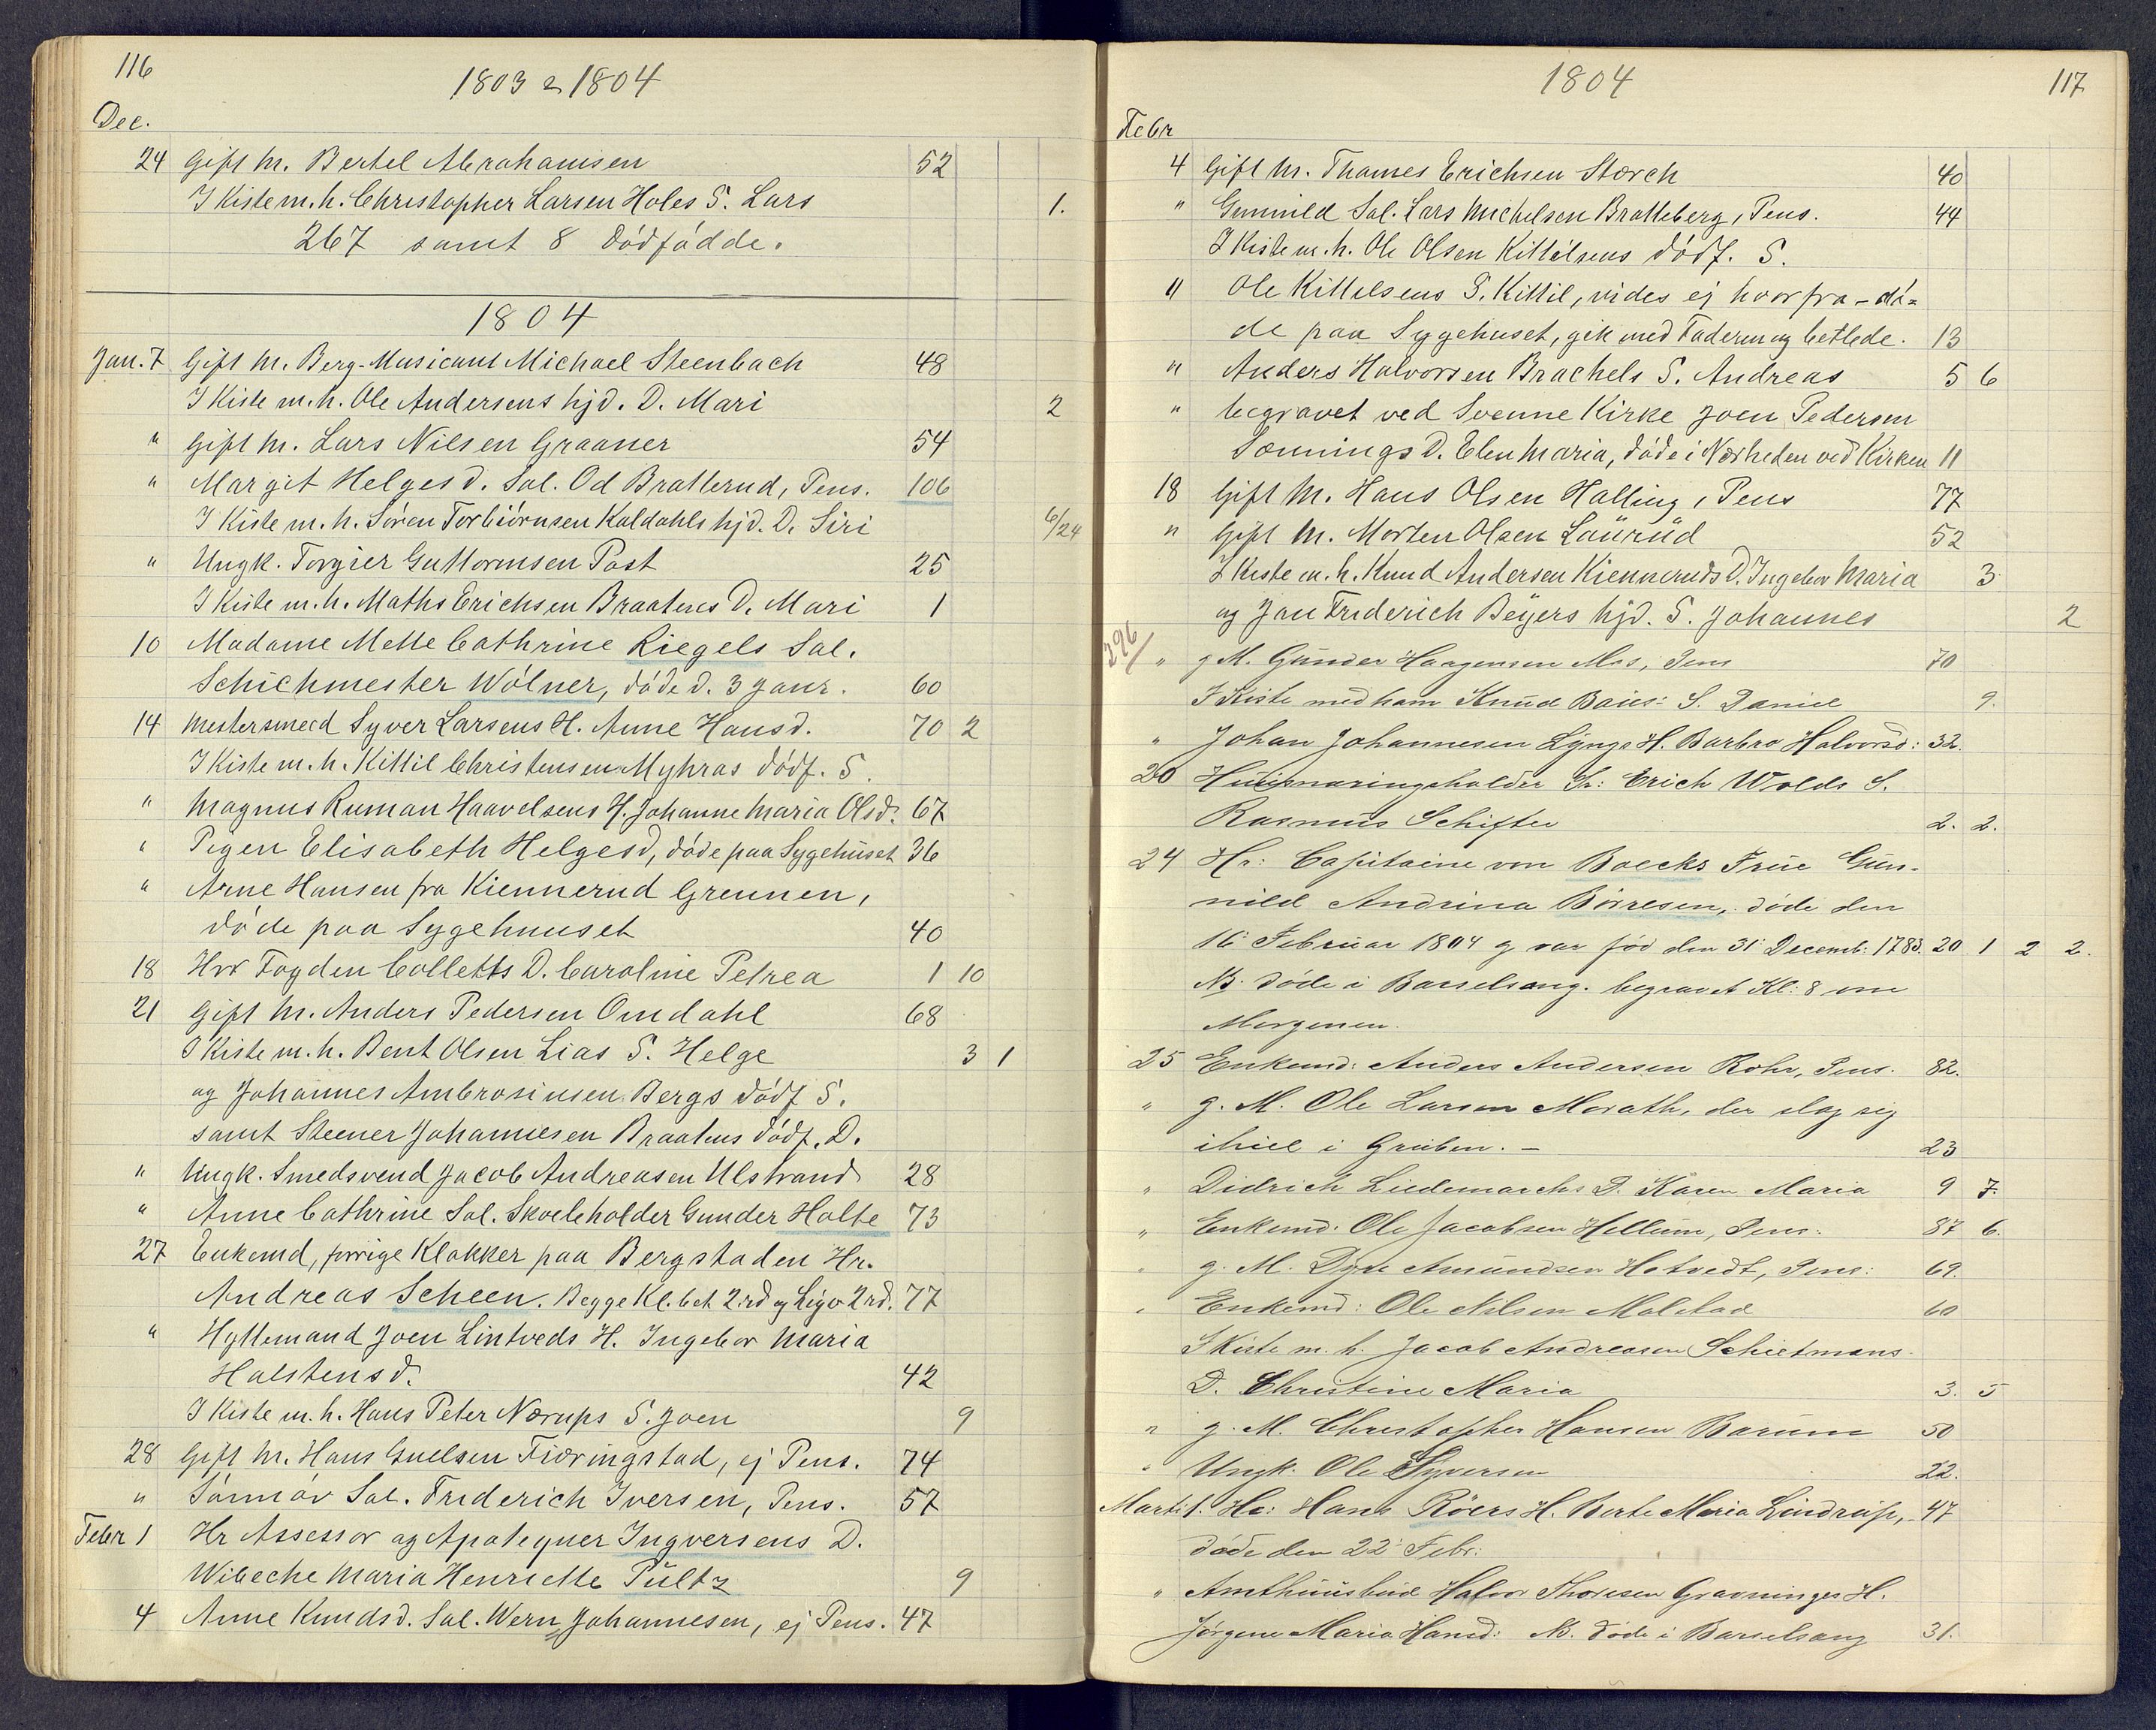 116
1803 & 1804
Dec.
24 Gift M. Bertel Abrahamsen 52
I Kiste m. h. Christopher Larsen Holes S. Lars 1.
267 samt 8 dödfödde.
1804
Jan. 7 Gift M. Berg-Musicant Michael Steenbach 48
I Kiste m. h. Ole Andersens hjd. D. Mari 2
" Gift M. Lars Nilsen Graaner 54
" Margit Helgesd. Sal. Od Bratterud, Pens. 106
I Kiste m. h. Sören Torbiörnsen Kaldahls hjd. D. Siri 6/24
" Ungk. Torgier Guttormsen Post 25
I Kiste m. h. Maths Erichsen Braatens D. Mari 1
10 Madame Mette Cathrine Riegels Sal.
Schichmester Wölner, döde d. 3 Janr. 60
14 Mestersmed Syver Larsens H. Anne Hansd. 70 2
I Kiste m. h. Kittil Christensen Myhras dödf. S.
" Magnus Ruman Haavelsens H. Johanne Maria Olsd. 67
" Pigen Elisabeth Helgesd, döde paa Sygehuset 36
" Arne Hansen fra Kiennerud Grennen,
döde paa Sygehuuset 40
18 Hrr Fogden Colletts D. Caroline Petrea 1 10
21 Gift M. Anders Pedersen Omdahl 68
I Kiste m. h. Bent Olsen Lias S. Helge 3 1
og Johannes Ambrosiusen Bergs dödf S.
samt Steener Johannesen Braatens dödf. D.
" Ungk. Smedsvend Jacob Andreasen Ulstrand 28
" Anne Cathrine Sal. Skoleholder Gunder Holte 73
27 Enkemd, forrige Klokker paa Bergstaden Hr.
Andreas Scheen. Begge Kl. bet. 2 rd og Ligv 2 rd. 77
" Hyttemand Joen Lintveds H. Ingebor Maria
Halstensd. 42
I Kiste m. h. Hans Peter Nærups S. Joen 9
28 Gift M. Hans Guelsen Fiøringstad, ej Pens. 74
" Sönnöv Sal. Friderich Iversen, Pens. 57
Febr 1 Hr Assessor og Apoteqver Ingversens D.
Wibeche Maria Henriette Pültz 9
4 Anne Knudsd. Sal. Wern Johannesen, ej Pens. 47
1804
117
Febr
4 Gift M. Thames Erichsen Storch 40
" Gunnild Sal. Lars Michelsen Bratteberg, Pens. 44
I Kiste m. h. Ole Olsen Kittilsens dödf. S.
11 Ole Kittelsens S. Kittil, vides ej hvorfra - dö=
de paa Sygehuset, gik med Faderen og betlede. 13
" Anders Halvorsen Brachels S. Andreas 5 6
" begravet ved Svenne Kirke Joen Pedersen
Sønnings D. Elen Maria, döde i Nærheden ved Kirken 11
18 Gift M. Hans Olsen Halling, Pens 77
" Gift M. Morten Olsen Laürüd 52
I Kiste m. h. Knud Andersen Kienneruds D. Ingebor Maria 3
og Jan Friderich Beÿers hjd. S. Johannes 2
296
" g M. Günder Haagensen Mos, Pens 70
I Kiste med ham Knüd Baüs: S. Daniel 9.
" Johan Johannesen Lÿngs H. Barbro Halvorsd: 32.
20 Hüüsnæringsholder Sr: Erich Wolds S.
Rasmus Schifter 2. 2.
24 Hr: Capitaine von Boecks Früe Gün-
nild Andrina Börresen, döde den
16 Februar 1804 og var föd den 31 Decemb: 1783. 20 1 2 2.
NB. döde i Barselsang. begravet Kl: 8 om
Morgenen.
25 Enkemd: Anders Andersen Rohr, Pens. 82.
" g. M. Ole Larsen Morath, der slog sig
ihiel i Gruben. - 23
" Didrich Liedemarchs D. Karen Maria 9 7.
" Enkemd: Ole Jacobsen Hellum, Pens: 87 6.
" g. M. Dyre Amündsen Hotvedt, Pens: 69.
" Enkemd: Ole Nilsen Molstad 60
I Kiste m. h. Jacob Andreasen Schietmans
D. Christine Maria 3. 5
" g. M. Christopher Hansen Barüm 50
" Ungk. Ole Syversen 22.
Marti 1. Hr: Hans Röers H. Berte Maria Lindrüp, 47
döde den 22 Febr:
" Amthüüsbüd Halvor Thoresen Gravninges H.
Jörgene Maria Hansd: NB. döde i Barselsang 31.